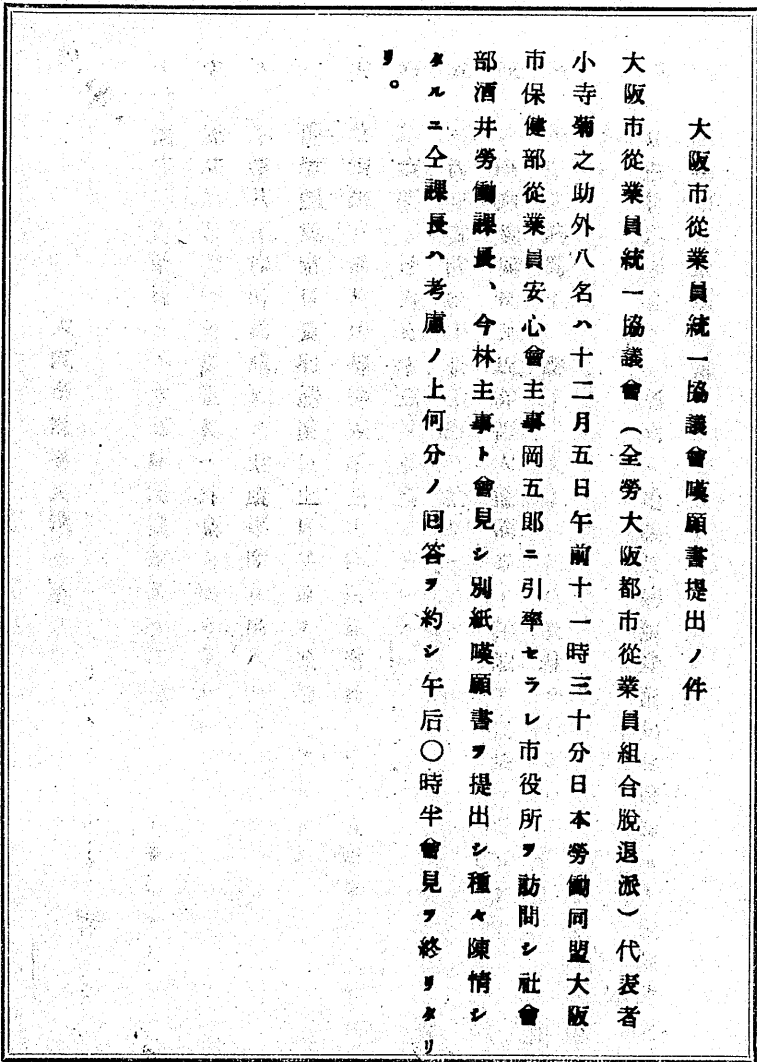 大阪市從業員統一協議會嘆願書提出ノ件
大阪市從業員統一協議會（全勞大阪都市從業員組合脫退派）代表者
小寺菊之助外八名ハ十二月五日午前十一時三十分日本勞働同盟大阪
市保健部從業員安心會主事岡五郎ニ引率セラレ市役所ヲ訪問シ社會
部酒井勞働課長、今林主事ト會見シ別紙嘆願書ヲ提出シ種々陳情シ
タルニ仝課長ハ考慮ノ上何分ノ回答ヲ約シ午后〇時半會見ヲ終リタリ
リ。